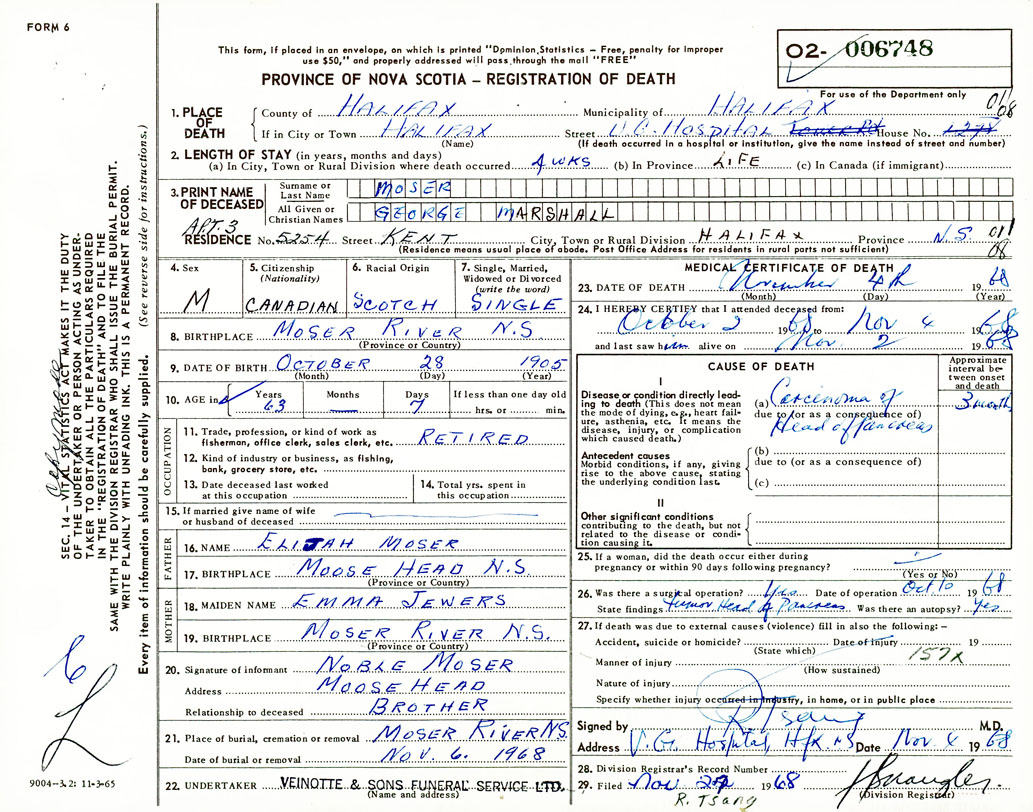 FORM 6
This form, if placed in an envelope, on which is printed "Dominion Statistics – Free, penalty for improper
use $50," and properly addressed will pass through the mail "FREE"
PROVINCE OF NOVA SCOTIA – REGISTRATION OF DEATH
02- 006748
For use of the Department only
1. PLACE OF DEATH County of HALIFAX Municipality of HALIFAX 08
If in City or Town HALIFAX Street V.G. HOSPITAL Tower Rd House No. 1278
(Name) (If death occurred in a hospital or institution, give the name instead of street and number)
2. LENGTH OF STAY (in years, months and days)
(a) In City, Town or Rural Division where death occurred 4 WKS (b) In Province LIFE (c) In Canada (if immigrant)
3. PRINT NAME OF DECEASED
Surname or Last Name MOSER
All Given or Christian Names GEORGE MARSHALL
APT. 3
RESIDENCE No. 5254 Street KENT City, Town or Rural Division HALIFAX Province N.S. 08
(Residence means usual place of abode. Post Office Address for residents in rural parts not sufficient)
4. Sex M
5. Citizenship (Nationality) CANADIAN
6. Racial Origin SCOTCH
7. Single, Married, Widowed or Divorced (write the word) SINGLE
8. BIRTHPLACE MOSER RIVER N.S.
(Province or Country)
9. DATE OF BIRTH OCTOBER 28 1905
(Month) (Day) (Year)
10. AGE in Years 63 Months — Days 7 If less than one day old
hrs. or min.
OCCUPATION
11. Trade, profession, or kind of work as
fisherman, office clerk, sales clerk, etc. RETIRED
12. Kind of industry or business, as fishing,
bank, grocery store, etc.
13. Date deceased last worked
at this occupation
14. Total yrs. spent in
this occupation
15. If married give name of wife
or husband of deceased
FATHER
16. NAME ELIJAH MOSER
17. BIRTHPLACE MOOSE HEAD N.S.
(Province or Country)
MOTHER
18. MAIDEN NAME EMMA JEWERS
19. BIRTHPLACE MOSER RIVER N.S.
(Province or Country)
20. Signature of informant NOBLE MOSER
Address MOOSE HEAD
Relationship to deceased BROTHER
21. Place of burial, cremation or removal MOSER RIVER N.S.
Date of burial or removal NOV. 6. 1968
22. UNDERTAKER VEINOTTE & SONS FUNERAL SERVICE LTD.
(Name and address)
MEDICAL CERTIFICATE OF DEATH
23. DATE OF DEATH November 4th 1968
(Month) (Day) (Year)
24. I HEREBY CERTIFY that I attended deceased from:
October 2 1968 to Nov 4 1968
and last saw him alive on Nov. 2 1968
CAUSE OF DEATH
Approximate interval between onset and death
I
Disease or condition directly leading to death (This does not mean the mode of dying, e.g., heart failure, asthenia, etc. It means the disease, injury, or complication which caused death.)
(a) Carcinoma of 3 months
due to (or as a consequence of)
Head of Pancreas
Antecedent causes
Morbid conditions, if any, giving rise to the above cause, stating the underlying condition last.
(b)
due to (or as a consequence of)
(c)
II
Other significant conditions
contributing to the death, but not related to the disease or condition causing it.
25. If a woman, did the death occur either during
pregnancy or within 90 days following pregnancy?
(Yes or No)
26. Was there a surgical operation? Yes Date of operation Oct 10 1968
State findings tumor Head of Pancreas Was there an autopsy? Yes
27. If death was due to external causes (violence) fill in also the following: –
Accident, suicide or homicide? Date of injury 19
(State which) 157X
Manner of injury
(How sustained)
Nature of injury
Specify whether injury occurred in industry, in home, or in public place
Signed by R Tsang M.D.
Address V.G. Hospital, Hfx. NS Date Nov 4 1968
28. Division Registrar's Record Number
29. Filed Nov 27 1968
(Division Registrar)
R. Tsang
SEC. 14 – VITAL STATISTICS ACT MAKES IT THE DUTY
OF THE UNDERTAKER OR PERSON ACTING AS UNDER-
TAKER TO OBTAIN ALL THE PARTICULARS REQUIRED
IN THE "REGISTRATION OF DEATH" AND TO FILE THE
SAME WITH THE DIVISION REGISTRAR WHO SHALL ISSUE THE BURIAL PERMIT.
WRITE PLAINLY WITH UNFADING INK. THIS IS A PERMANENT RECORD.
Every item of information should be carefully supplied. (See reverse side for instructions.)
9004–3.2: 11-3-65